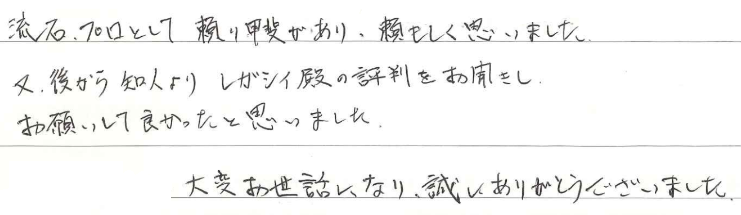 流石、プロとして 頼り甲斐があり、頼もしく思いました。
又、後から 知人より レガシイ殿の評判をお聞きし、
お願いして良かったと思いました。
大変お世話になり、誠にありがとうございました。